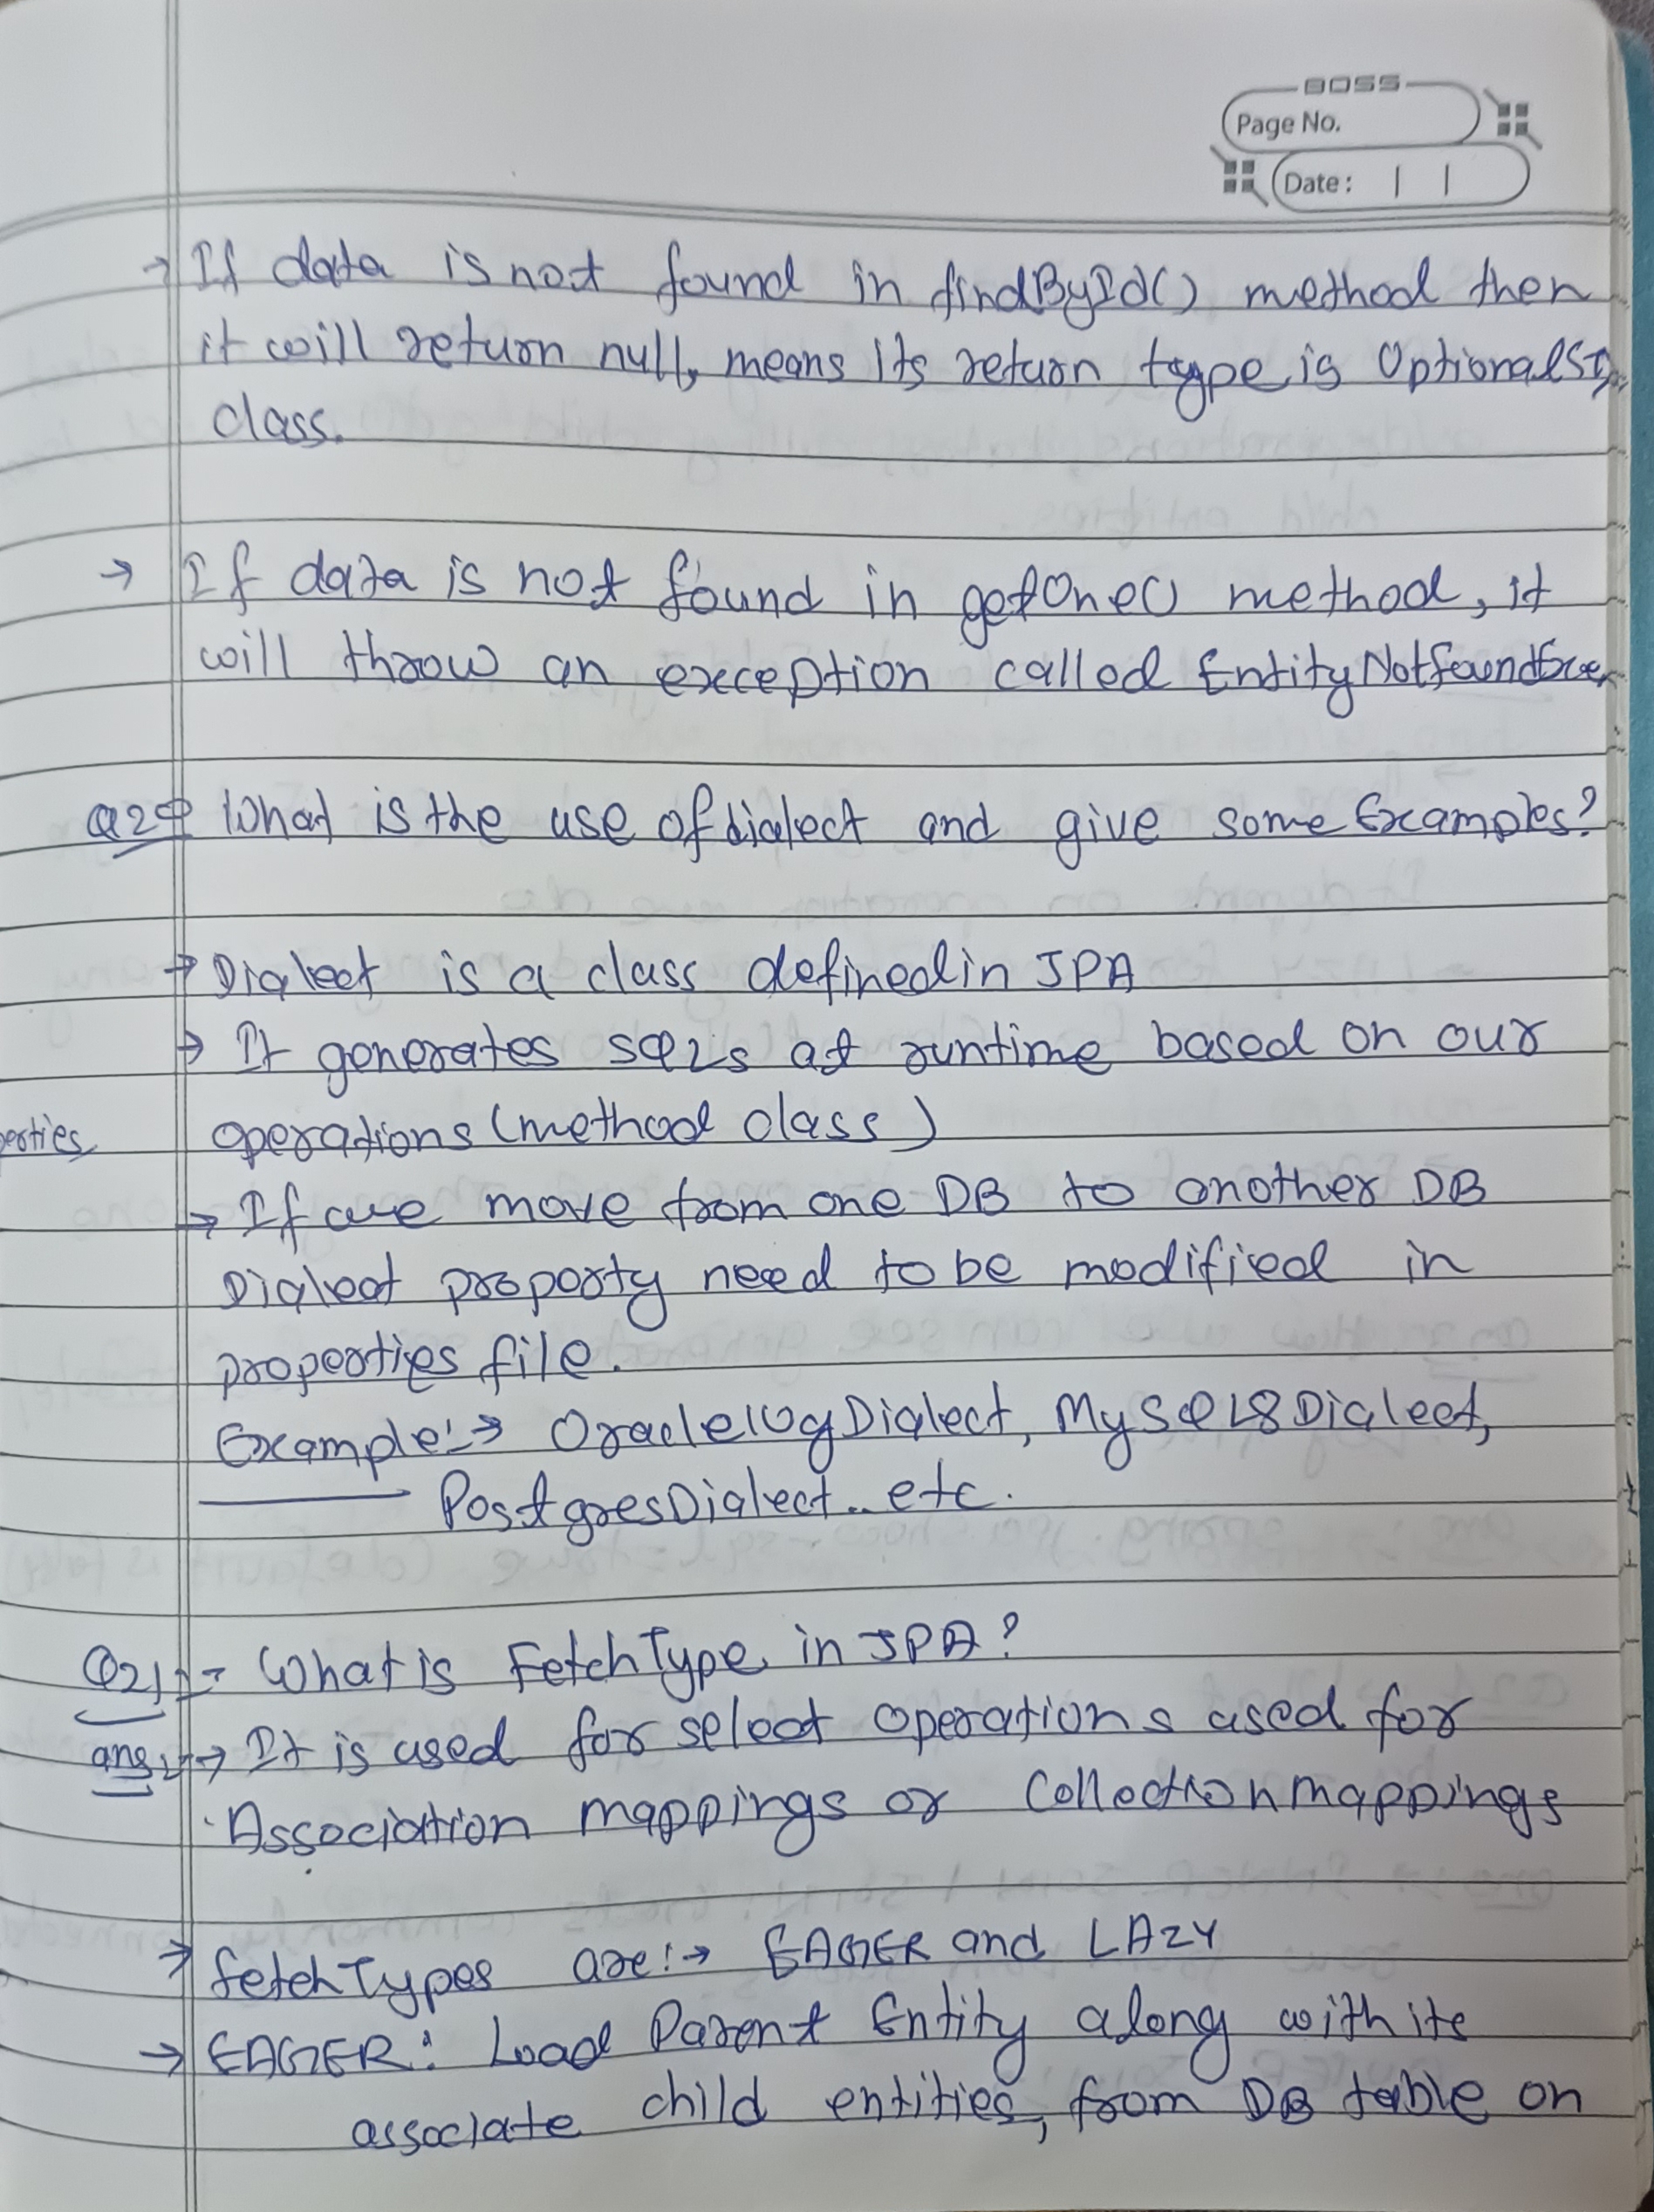 BOSS
Page No.
Date:
→ If data is not found in findById() method then
it will return null, means its return type is Optional
class.
→ If data is not found in getOne() method, it
will throw an exception called EntityNotfoundExce
What is the use of dialect and give some Examples?
→ Dialect is a class defined in JPA
→ It generates SQLs at runtime based on our
perties operations (method class)
→ If we move from one DB to another DB
Dialect property need to be modified in
properties file.
Example:→ Oracle10gDialect, MySQL8Dialect,
PostgresDialect.. etc.
Q21:- What is FetchType in JPA?
ans:→ It is used for select operations used for
Association mappings or Collection mappings
→ fetchTypes are:→ EAGER and LAZY
→ EAGER: Load Parent Entity along with its
associate child entities, from DB table on